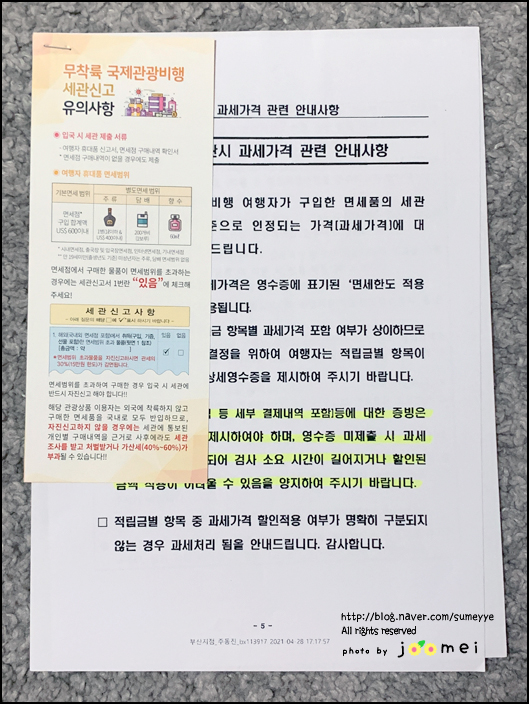 무착륙 국제관광비행
세관신고
유의사항
◉ 입국 시 세관 제출 서류
- 여행자 휴대품 신고서, 면세점 구매내역 확인서
* 면세점 구매내역이 없을 경우에도 제출
◉ 여행자 휴대품 면세범위
기본면세 범위
별도면세 범위
주 류
담 배
향 수
면세점*
구입 합계액
US$ 600이내
1병(1ℓ이하 &
US$ 400이내)
200개비
(10갑)
60㎖
면세점에서 구매한 물품이 면세범위를 초과하는
경우에는 세관신고서 1번란 "있음"에 체크해
주세요!
세 관 신 고 사 항
- 아래 질문의 해당 □에 "✓"표시 하시기 바랍니다 -
1. 해외(국내외 면세점 포함)에서 취득(구입, 기증,
선물 포함)한 면세범위 초과 물품(뒷면 1 참조)
[총금액 : 약 ]
있음 없음
*면세범위 초과물품을 자진신고하시면 관세의
30%(15만원 한도)가 감면됩니다.
면세범위를 초과하여 구매한 경우 입국 시 세관에
반드시 자진신고 해야 합니다!!
해당 관광상품 이용자는 외국에 착륙하지 않고
구매한 면세품을 국내로 모두 반입하므로,
자진신고하지 않을 경우에는 세관에 통보된
개인별 구매내역을 근거로 사후에라도 세관
조사를 받고 처벌받거나 가산세(40%~60%)가
부과될 수 있습니다!!
과세가격 관련 안내사항
시 과세가격 관련 안내사항
비행 여행자가 구입한 면세품의 세관
준으로 인정되는 가격(과세가격)에 대
드립니다.
세가격은 영수증에 표기된 '면세한도 적용
용됩니다.
금 항목별 과세가격 포함 여부가 상이하므로
결정을 위하여 여행자는 적립금별 항목이
상세영수증을 제시하여 주시기 바랍니다.
등 세부 결제내역 포함)등에 대한 증빙은
제시하여야 하며, 영수증 미제출 시 과세
되어 검사 소요 시간이 길어지거나 할인된
금액 적용이 어려울 수 있음을 양지하여 주시기 바랍니다.
□ 적립금별 항목 중 과세가격 할인적용 여부가 명확히 구분되지
않는 경우 과세처리 됨을 안내드립니다. 감사합니다.
- 5 -
http://blog.naver.com/sumeyye
All rights reserved
photo by joomei